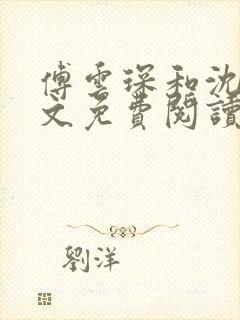 傅雲琛和沈
文免費閱讀
劉洋